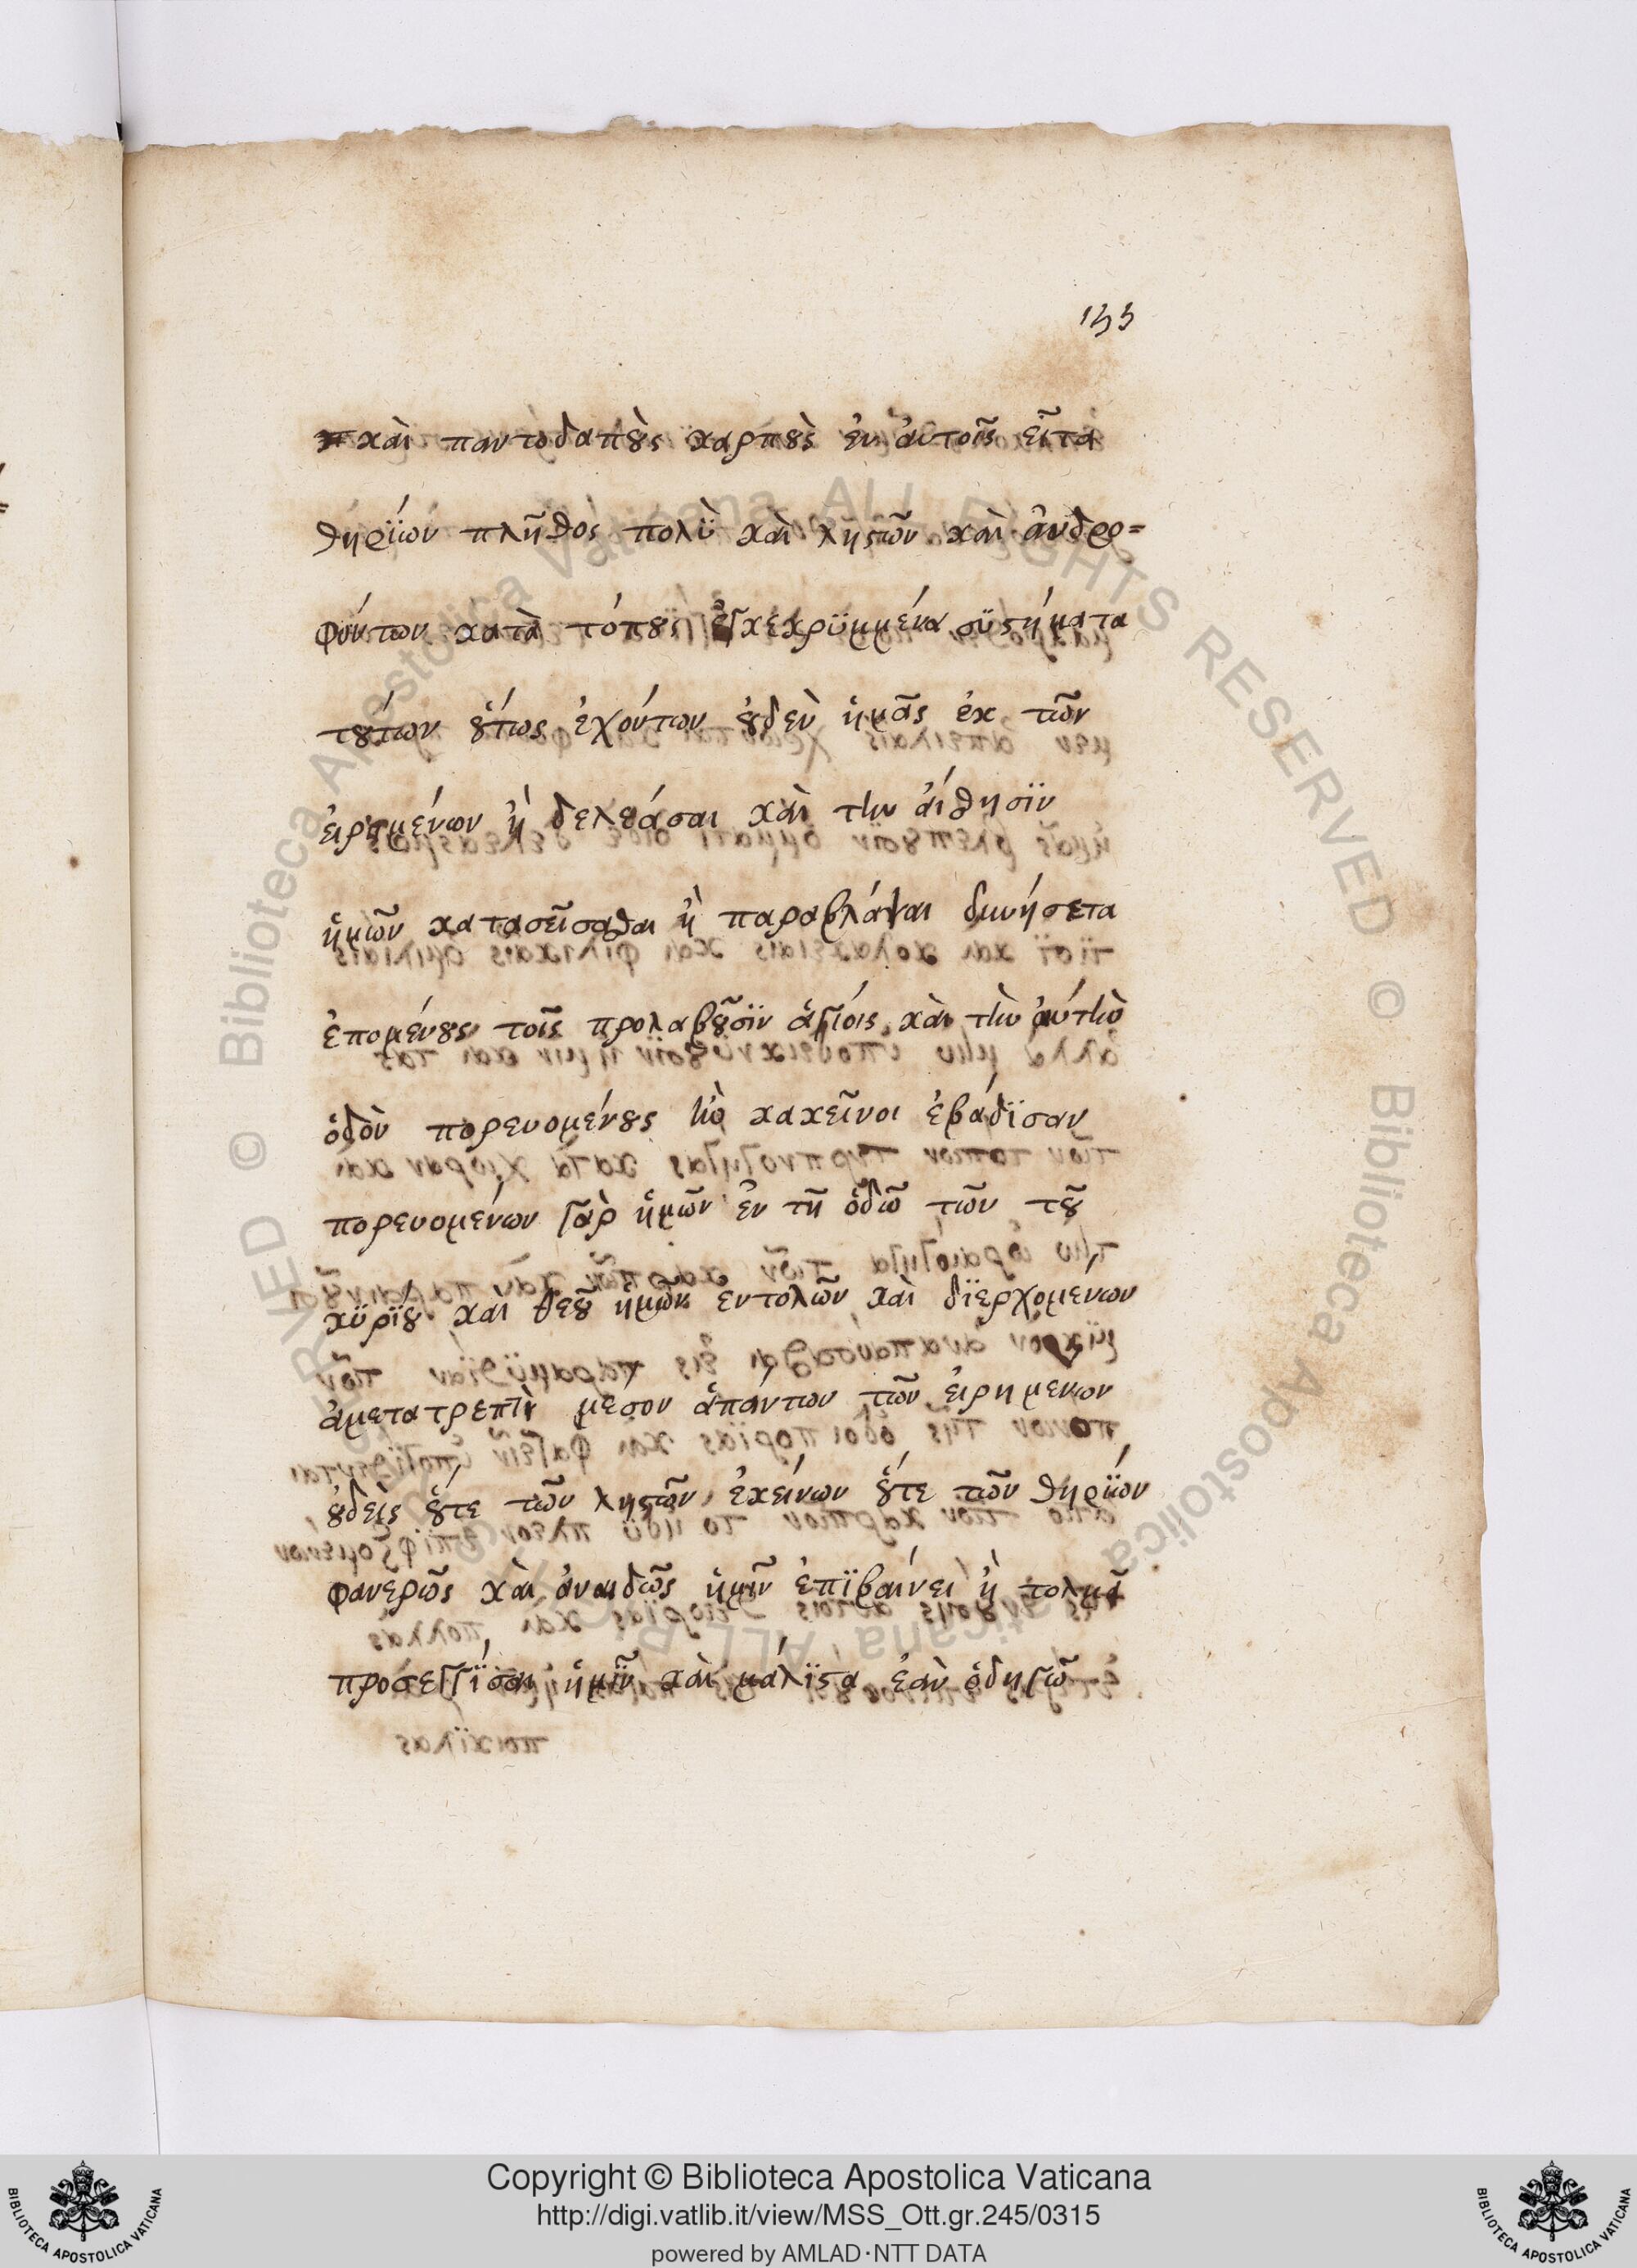 155
καὶ παντοδαποὺς καρποὺς ἐν ἀυτοῖς εἶτα
θηρΐων πλῆθος πολὺ̈ καὶ λῃστῶν καὶ ἀνδρο=
φόντων κατὰ τόπους ἐγκεκρϋμμένα σϋστήματα
τούτων όὕτως ἐχόντων ὀυδεν ἡμᾶς ἐκ τῶν
ἐιρημένων ἢ δελεάσαι καὶ τὴν ἀίθησϊν
ἡμῶν κατασεῖσασθαι ἢ παραβλάψαι δυνήσεται
ἑπομένους τοῖς προλαβοῦσϊν ἁγίοις καὶ τὴν ἀύτὴν
ὁδὸν πορευομένους ἣν κακεῖνοι ἐβάδϊσαν
πορευομένων γὰρ ἡμῶν ἐν τῆ ὁδῶ τῶν τοῦ
κϋρΐου καὶ θεοῦ ἡμῶν εντολῶν καὶ δϊερχομένων
ἀμετατρεπτὶ μέσον ἁπάντων τῶν ἐιρημενων
ὀυδεὶς ὄυτε τῶν λῃστῶν ἐκείνων ὄυτε τῶν θηρΐων
φανερῶς καὶ ἀναιδῶς ἡμῖν ἐπϊβαίνει ἢ τολμᾶ
προσεγγΐσαι ἡμῖν καὶ μάλϊστα ἐὰν ὁδηγῶ
Copyright © Biblioteca Apostolica Vaticana
http://digi.vatlib.it/view/MSS_Ott.gr.245/0315
powered by AMLAD·NTT DATA
BIBLIOTECA APOSTOLICA VATICANA
BIBLIOTECA APOSTOLICA VATICANA